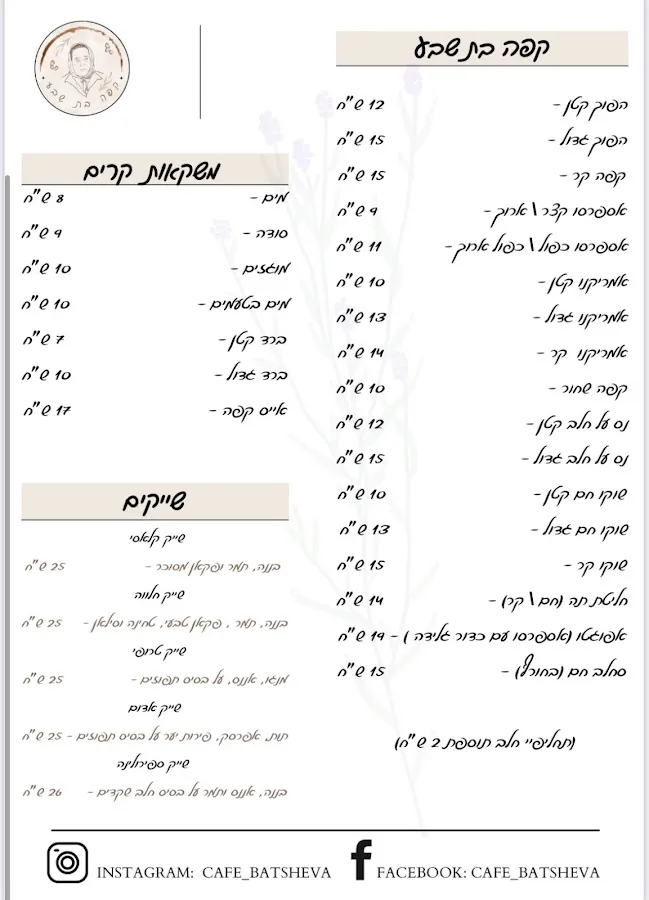 קפה בת שבע
קפה בת שבע
הפוך קטן - 12 ש"ח
הפוך גדול - 15 ש"ח
קפה קר - 15 ש"ח
אספרסו קצר \ ארוך - 9 ש"ח
אספרסו כפול \ כפול ארוך - 11 ש"ח
אמריקנו קטן - 10 ש"ח
אמריקנו גדול - 13 ש"ח
אמריקנו קר - 14 ש"ח
קפה שחור - 10 ש"ח
נס על חלב קטן - 12 ש"ח
נס על חלב גדול - 15 ש"ח
שוקו חם קטן - 10 ש"ח
שוקו חם גדול - 13 ש"ח
שוקו קר - 15 ש"ח
חליטת תה (חם \ קר) - 14 ש"ח
אפוגטו (אספרסו עם כדור גלידה ) - 19 ש"ח
סחלב חם (בחורף) - 15 ש"ח
(תחליפיי חלב תוספת 2 ש"ח)
משקאות קרים
מים - 8 ש"ח
סודה - 9 ש"ח
מוגזים - 10 ש"ח
מים בטעמים - 10 ש"ח
ברד קטן - 7 ש"ח
ברד גדול - 10 ש"ח
אייס קפה - 17 ש"ח
שייקים
שייק קלאסי
בננה, תמר ופקאן מסוכר - 25 ש"ח
שייק חלווה
בננה, תמר , פקאן טבעי, טחינה וסילאן - 25 ש"ח
שייק טרופי
מנגו, אננס, על בסיס תפוזים - 25 ש"ח
שייק אדום
תות, אפרסק, פירות יער על בסיס תפוזים - 25 ש"ח
שייק ספירולינה
בננה, אננס ותמר על בסיס חלב שקדים - 26 ש"ח
INSTAGRAM: CAFE_BATSHEVA
FACEBOOK: CAFE_BATSHEVA